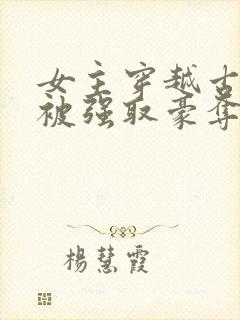 女主穿越古
被强取豪夺
楊慧霞